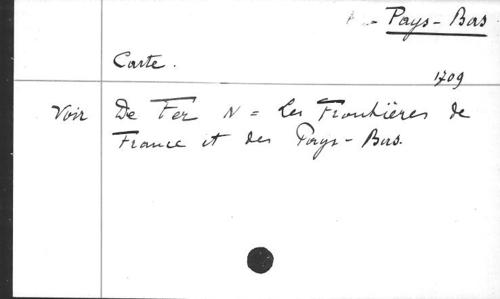 - Pays-Bas
Carte.
1709
Voir De Fer N = Les Frontières de
France et des Pays-Bas.